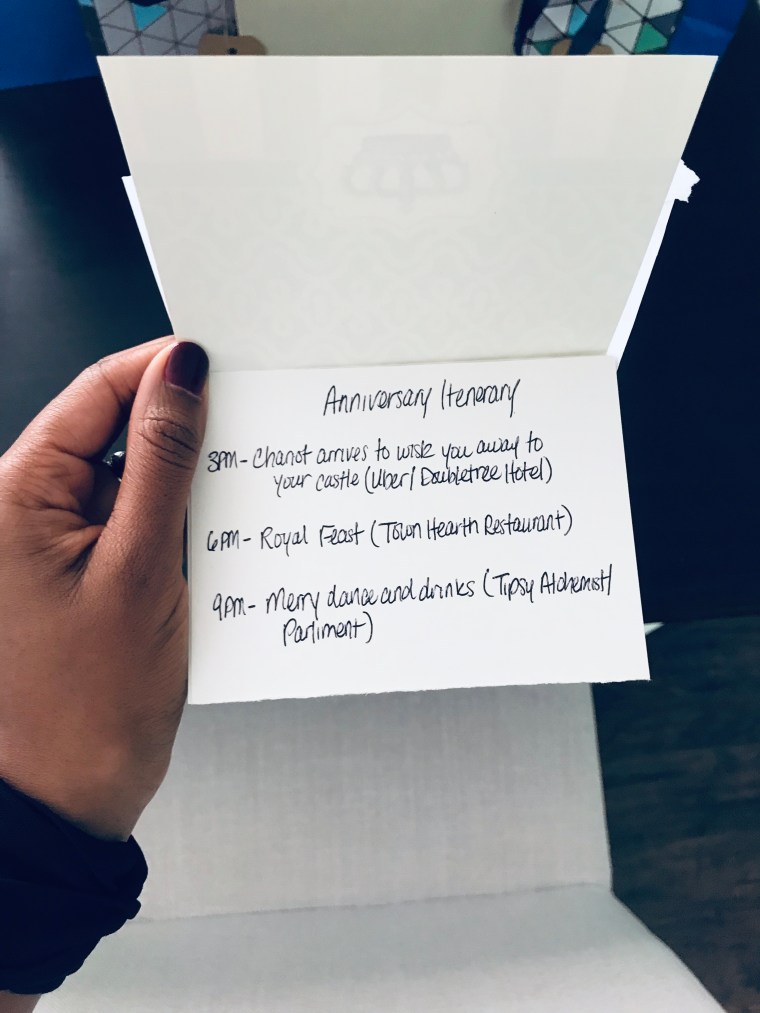 Anniversary Itenerary
3PM- Chariot arrives to wisk you away to
your castle (Uber/ Doubletree Hotel)
6PM- Royal Feast (Town Hearth Restaurant)
9PM- Merry dance and drinks (Tipsy Alchemist/
Parliment)